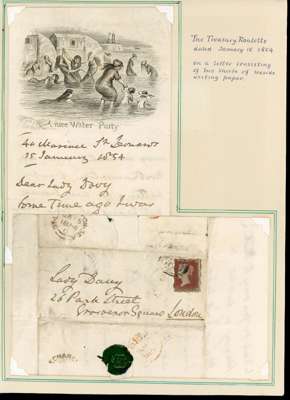 The Treasury Roulette
dated January 15 1854
on a letter consisting
of two sheets of seaside
writing paper.
Water Party
44 Marina St Leonards
15 January 1854
Dear Lady Davy
Some Time ago I was
Lady Davy
26 Park Street
Grosvenor Square London